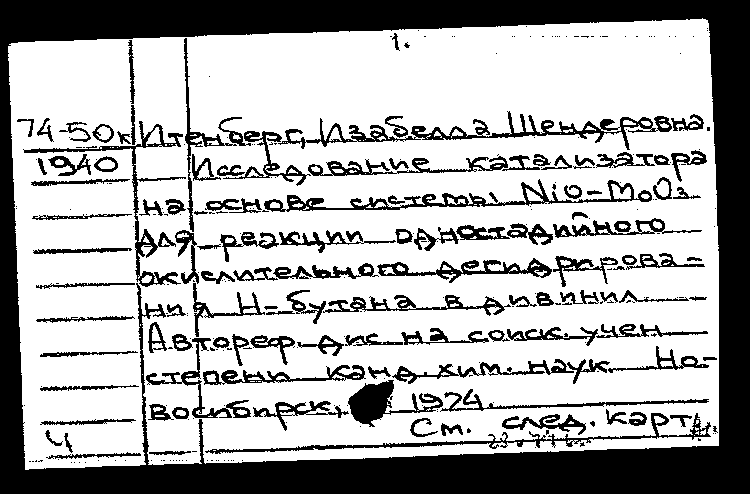 1.
74-50к Итенберг, Изабелла Шендеровна.
1940 Исследование катализатора
на основе системы NiO-MoO3
для реакции одностадийного
окислительного дегидрирова-
ния Н-бутана в дивинил.
Автореф. дис на соиск. учен
степени канд. хим. наук. Но-
восибирск, 1974.
Ч См. след. карт